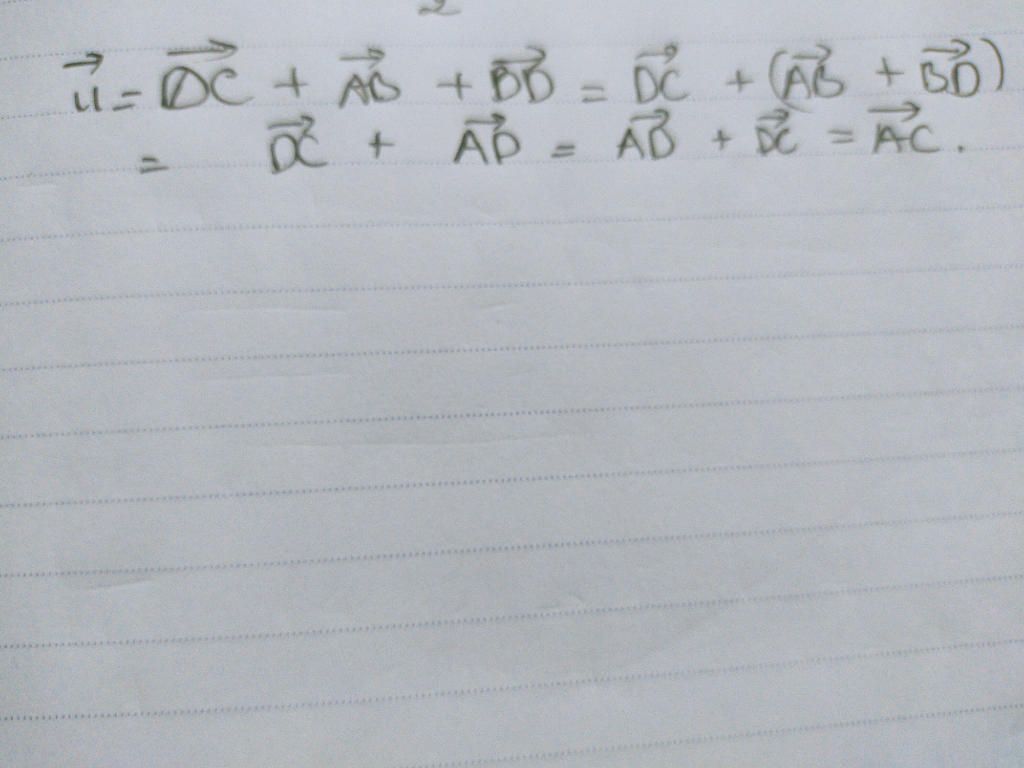 2
u⃗ = D⃗C⃗ + A⃗B⃗ + B⃗D⃗ = D⃗C⃗ + (A⃗B⃗ + B⃗D⃗)
= D⃗C⃗ + A⃗D⃗ = A⃗D⃗ + D⃗C⃗ = A⃗C⃗.